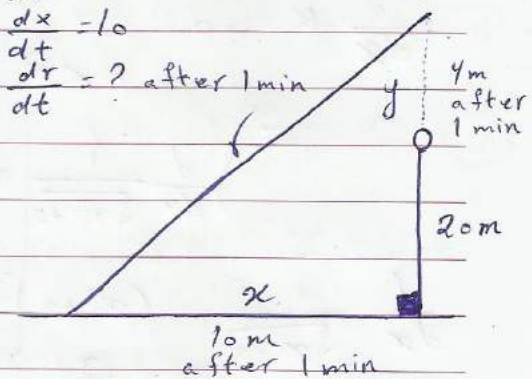 dx/dt = 10
dr/dt = ? after 1 min
y
4m
after
1 min
20m
x
10m
after 1 min